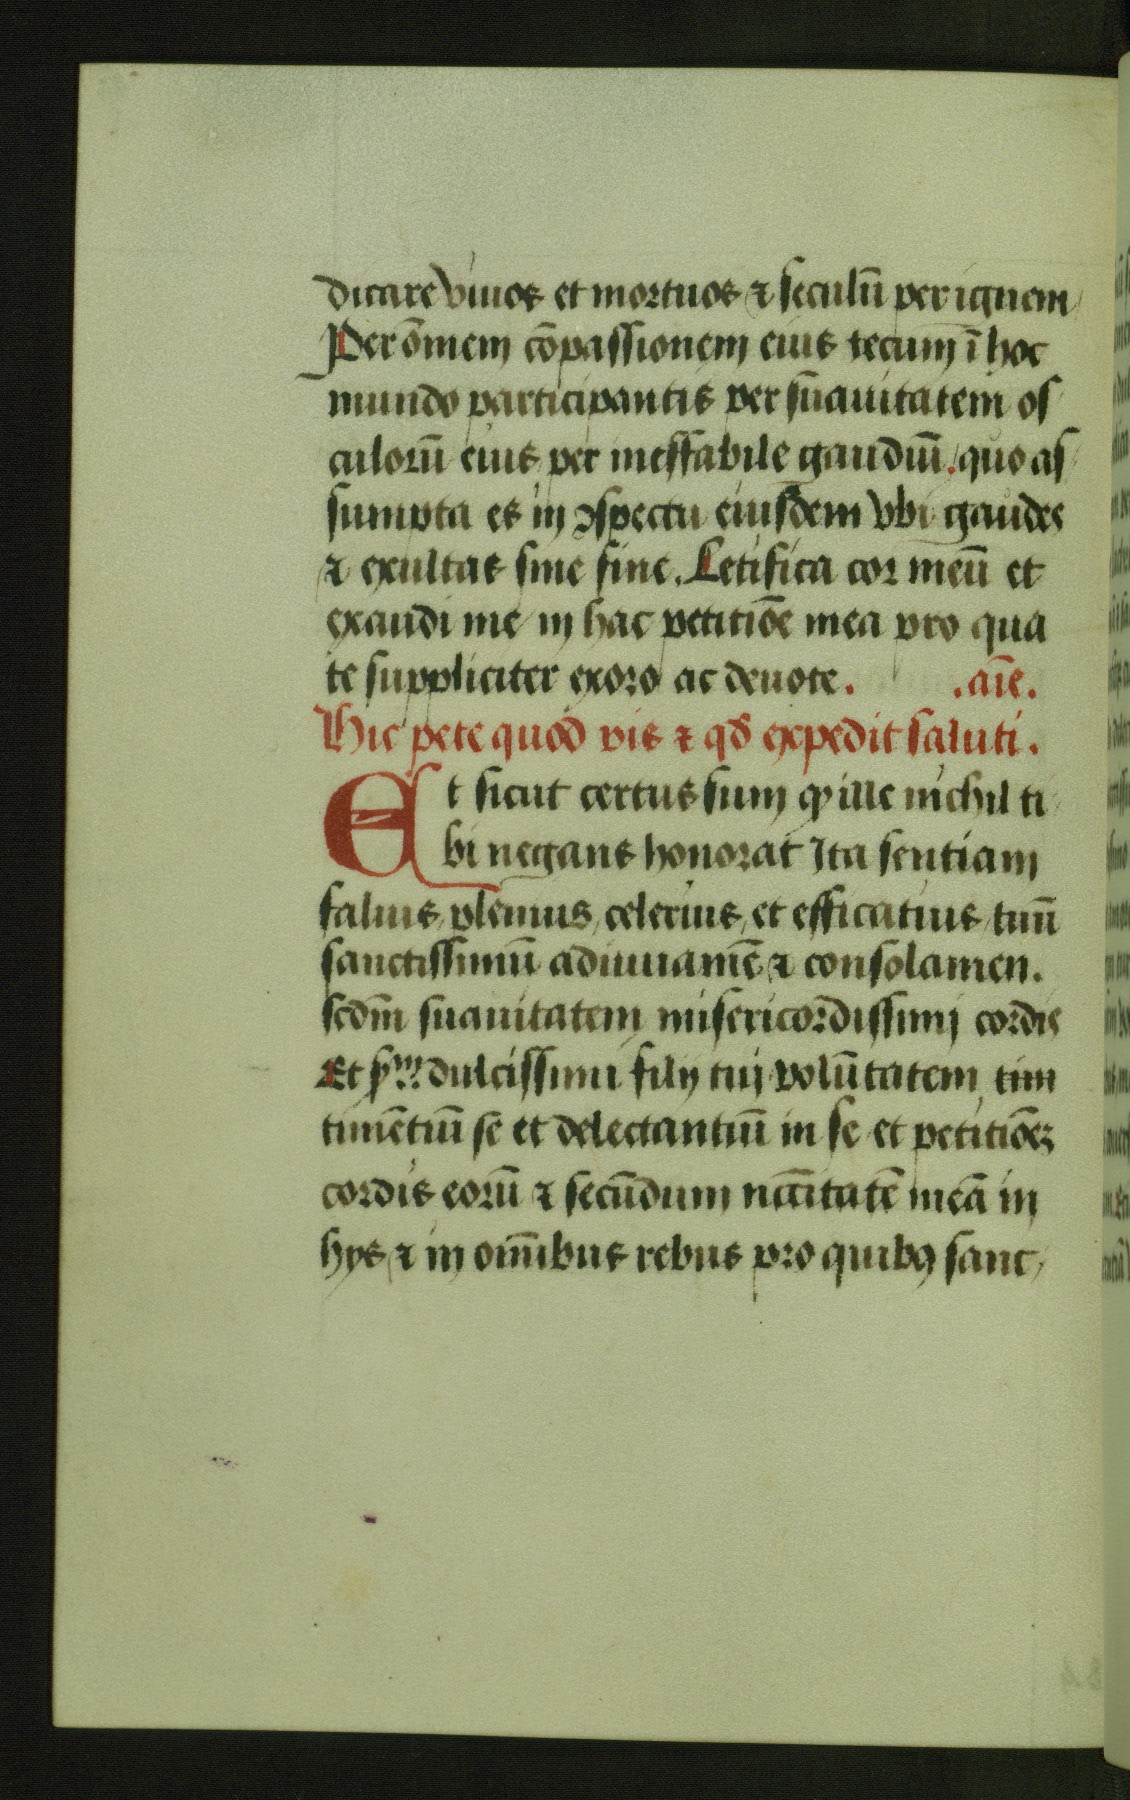 dicare viuos et mortuos ⁊ seculū per ignem
Per ōmem cōpassionem eius tecum ī hoc
mundo participantis per suauitatem os
culorū eius per ineffabile gaudiū. quo as
sumpta es in ꝯspectu eiusdem vbi gaudes
⁊ exultas sine fine. Letifica cor meū et
exaudi me in hac petitiōe mea pro qua
te suppliciter exoro ac deuote. .aīe.
Hic pete quod vis ⁊ qd̄ expedit saluti.
Et sicut certus sum ꝙ ille nichil ti
bi negans honorat Ita sentiam
salius, plenius, celerius, et efficatius, tuū
sanctissimū adiuuamē ⁊ consolamen.
scdm̄ suauitatem misericordissimi cordis
Et dulcissimi filij tuj volūtatem tim
timētiū se et delectantiū in se et petitiōez
cordis eorū ⁊ secūdum nccītatē meā in
hys ⁊ in omībus rebus pro quibꝰ sanc